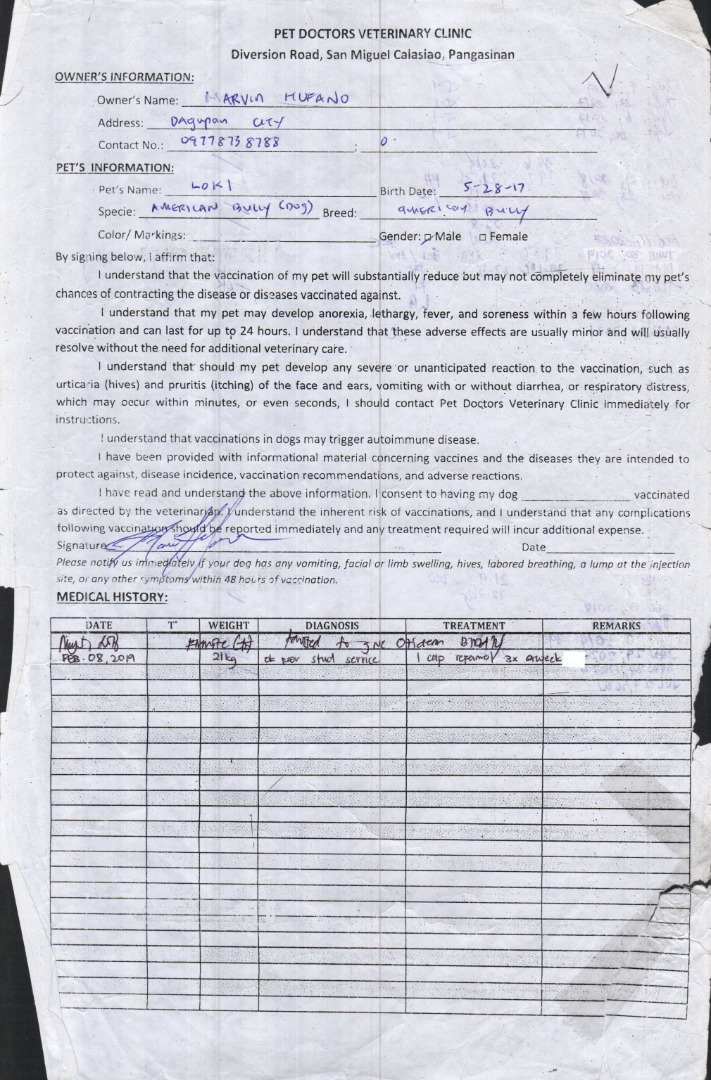 PET DOCTORS VETERINARY CLINIC
Diversion Road, San Miguel Calasiao, Pangasinan
OWNER'S INFORMATION:
Owner's Name: MARVIN HUFANO
Address: Dagupan City
Contact No.: 0977873 8788 ; 0
PET'S INFORMATION:
Pet's Name: LOKI Birth Date: 5-28-17
Specie: AMERICAN BULLY (DOG) Breed: AMERICAN BULLY
Color/ Markings: Gender: Male Female
By signing below, I affirm that:
I understand that the vaccination of my pet will substantially reduce but may not completely eliminate my pet's
chances of contracting the disease or diseases vaccinated against.
I understand that my pet may develop anorexia, lethargy, fever, and soreness within a few hours following
vaccination and can last for up to 24 hours. I understand that these adverse effects are usually minor and will usually
resolve without the need for additional veterinary care.
I understand that should my pet develop any severe or unanticipated reaction to the vaccination, such as
urticaria (hives) and pruritis (itching) of the face and ears, vomiting with or without diarrhea, or respiratory distress,
which may occur within minutes, or even seconds, I should contact Pet Doctors Veterinary Clinic immediately for
instructions.
I understand that vaccinations in dogs may trigger autoimmune disease.
I have been provided with informational material concerning vaccines and the diseases they are intended to
protect against, disease incidence, vaccination recommendations, and adverse reactions.
I have read and understand the above information. I consent to having my dog vaccinated
as directed by the veterinarian. I understand the inherent risk of vaccinations, and I understand that any complications
following vaccination should be reported immediately and any treatment required will incur additional expense.
Signature Date
Please notify us immediately if your dog has any vomiting, facial or limb swelling, hives, labored breathing, a lump at the injection
site, or any other symptoms within 48 hours of vaccination.
MEDICAL HISTORY:
DATE T° WEIGHT DIAGNOSIS TREATMENT REMARKS
to
FEB. 08, 2019 21kg stud service 1 cap 3x a week